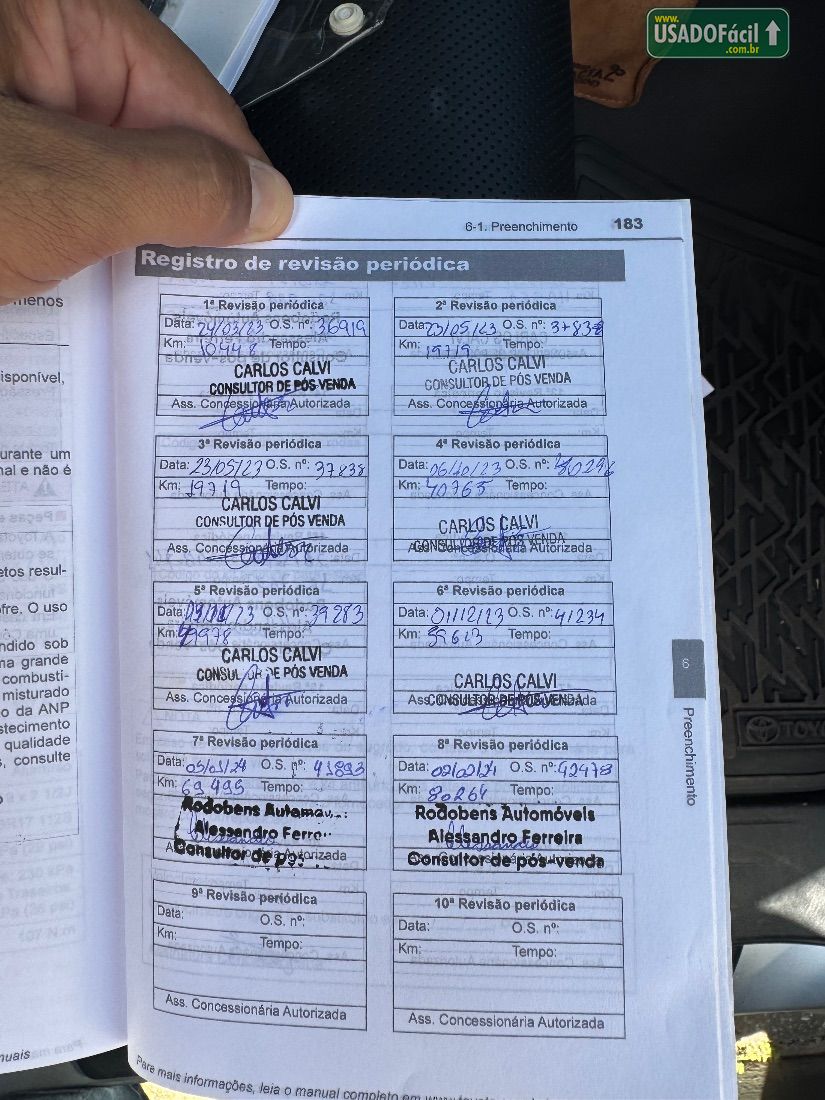 www.
USADOFácil
.com.br
6-1. Preenchimento 183
Registro de revisão periódica
1ª Revisão periódica
Data: 24/03/23 O.S. nº: 36919
Km: 10448 Tempo:
CARLOS CALVI
CONSULTOR DE PÓS VENDA
Ass. Concessionária Autorizada
2ª Revisão periódica
Data: 23/05/23 O.S. nº: 37838
Km: 19719 Tempo:
CARLOS CALVI
CONSULTOR DE PÓS VENDA
Ass. Concessionária Autorizada
3ª Revisão periódica
Data: 23/05/23 O.S. nº: 37838
Km: 19719 Tempo:
CARLOS CALVI
CONSULTOR DE PÓS VENDA
Ass. Concessionária Autorizada
4ª Revisão periódica
Data: 06/10/23 O.S. nº: 40296
Km: 40765 Tempo:
CARLOS CALVI
CONSULTOR DE PÓS VENDA
Ass. Concessionária Autorizada
5ª Revisão periódica
Data: O.S. nº: 39283
Km: Tempo:
CARLOS CALVI
CONSULTOR DE PÓS VENDA
Ass. Concessionária Autorizada
6ª Revisão periódica
Data: 01/12/23 O.S. nº: 41234
Km: 59613 Tempo:
CARLOS CALVI
CONSULTOR DE PÓS VENDA
Ass. Concessionária Autorizada
7ª Revisão periódica
Data: 05/01/24 O.S. nº: 41893
Km: 69495 Tempo:
Rodobens
Alessandro
Consultor de pós
Autorizada
8ª Revisão periódica
Data: 02/02/24 O.S. nº: 42478
Km: 80264 Tempo:
Rodobens Automóveis
Alessandro Ferreira
Consultor de pós-venda
Ass. Concessionária Autorizada
9ª Revisão periódica
Data: O.S. nº:
Km: Tempo:
Ass. Concessionária Autorizada
10ª Revisão periódica
Data: O.S. nº:
Km: Tempo:
Ass. Concessionária Autorizada
Para mais informações, leia o manual completo em
6
Preenchimento
menos
isponível,
urante um
nal e não é
etos resul-
ofre. O uso
ndido sob
na grande
combusti-
misturado
o da ANP
stecimento
qualidade
s, consulte
nuais
TOYO